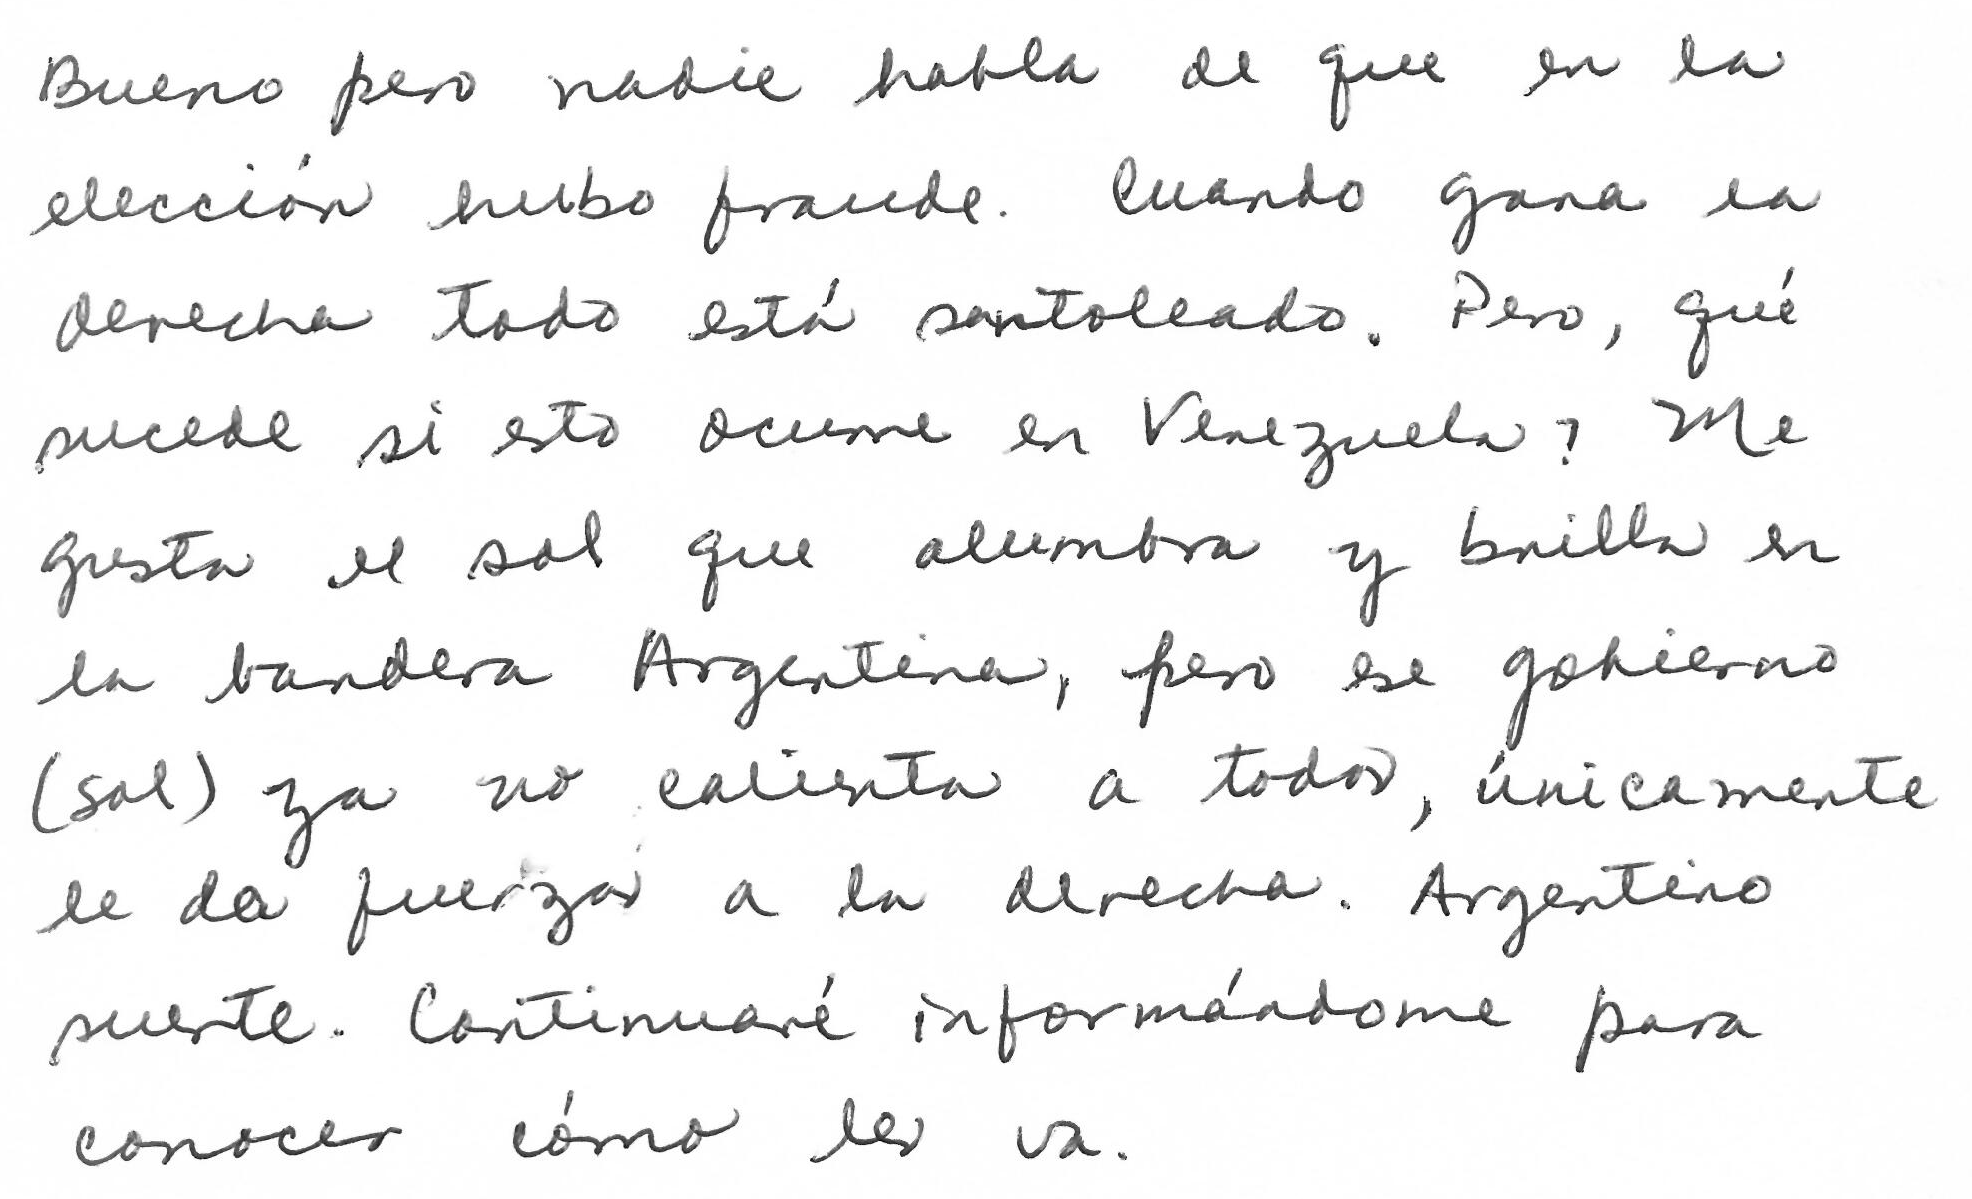 Bueno pero nadie habla de que en la
elección hubo fraude. Cuando gana la
derecha todo está santoleado. Pero, qué
sucede si esto ocurre en Venezuela? Me
gusta el sol que alumbra y brilla en
la bandera Argentina, pero ese gobierno
(sol) ya no calienta a todos, únicamente
le da fuerza a la derecha. Argentino
suerte. Continuaré informándome para
conocer cómo les va.